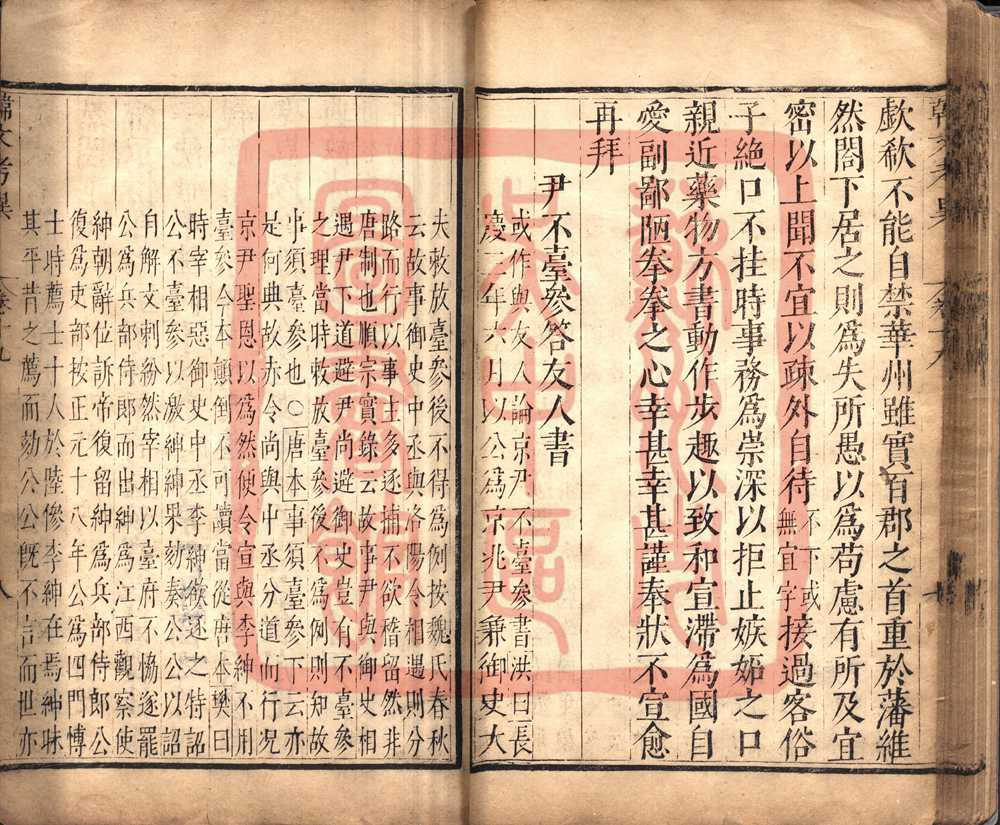 歔欷不能自禁華州雖實百郡之首重於藩維
然閤下居之則爲失所愚以爲苟慮有所及宜
密以上聞不宜以疎外自待不下或無宜字接過客俗
子絶口不挂時事務爲崇深以拒止嫉妬之口
親近藥物方書動作步趣以致和宣滯爲國自
愛副鄙陋拳拳之心幸甚幸甚謹奉狀不宣愈
再拜
尹不臺參答友人書
或作與友人論京尹不臺參書洪曰長
慶三年六月以公爲京兆尹兼御史大
夫敕放臺參後不得爲例按魏氏春秋
云故事御史中丞與洛陽令相遇則分
路而行以事主多逐捕不欲稽留然非
唐制也順宗實錄云故事尹與御史相
遇尹下道避尹尚避御史豈有不臺參
之理當時敕放臺參後不爲例則知故
事須臺參也〇唐本事須臺參下云亦
是何典故赤令尚與中丞分道而行况
京尹聖恩以爲然便令宣與李紳不用
臺參今本顛倒不可讀當從唐本樊曰
時宰相惡御史中丞李紳欲逐之特詔
公不臺參以激紳紳果劾奏公公以詔
自解文刺紛然宰相以臺府不恊遂罷
公爲兵部侍郎而出紳爲江西觀察使
紳朝辭位訴帝復留紳爲兵部侍郎公
復爲吏部按正元十八年公爲四門博
士時薦士十人於陸傪李紳在焉紳昧
其平昔之薦而劾公公旣不言而世亦
韓文考異
卷十九
八